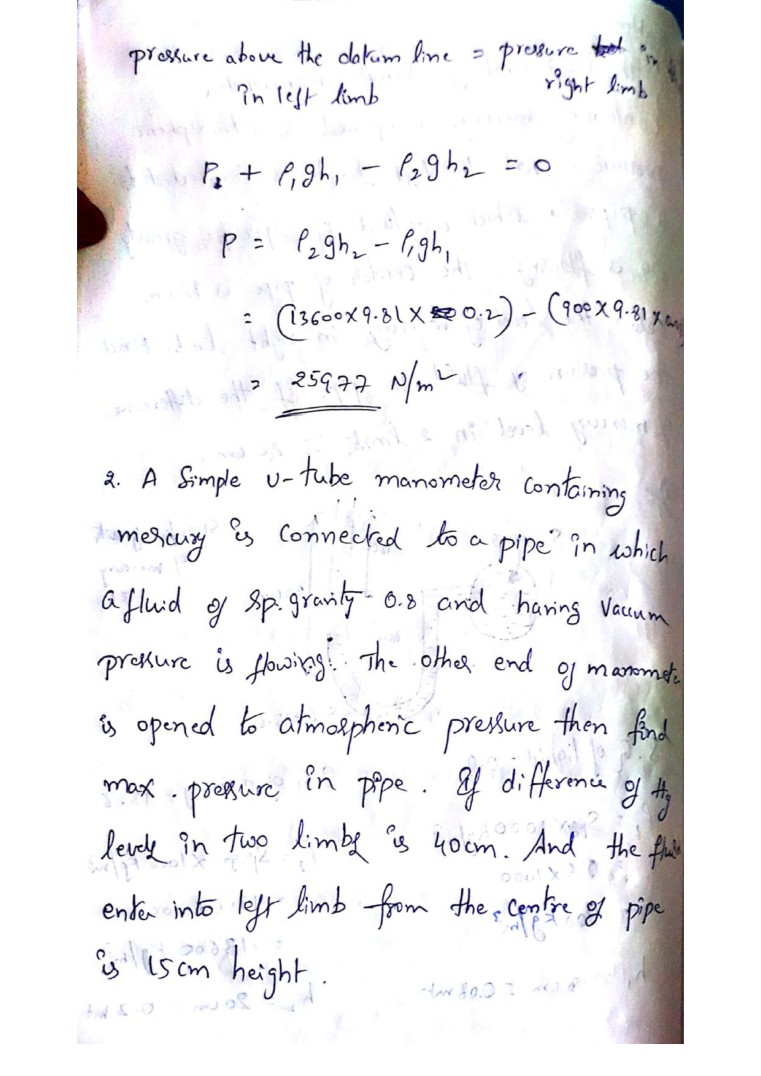 pressure above the datum line = pressure in
in left limb right limb
P + ρ₁gh₁ - ρ₂gh₂ = 0
P = ρ₂gh₂ - ρ₁gh₁
= (13600×9.81× 0.2) - (900×9.81×
= 25977 N/m²
2. A Simple U-tube manometer containing
mercury is connected to a pipe in which
a fluid of Sp. gravity 0.8 and having Vaccum
pressure is flowing. The other end of manomete
is opened to atmospheric pressure then find
max. pressure in pipe. If difference of Hg
levels in two limbs is 40cm. And the
enter into left limb from the centre of pipe
is 15cm height.